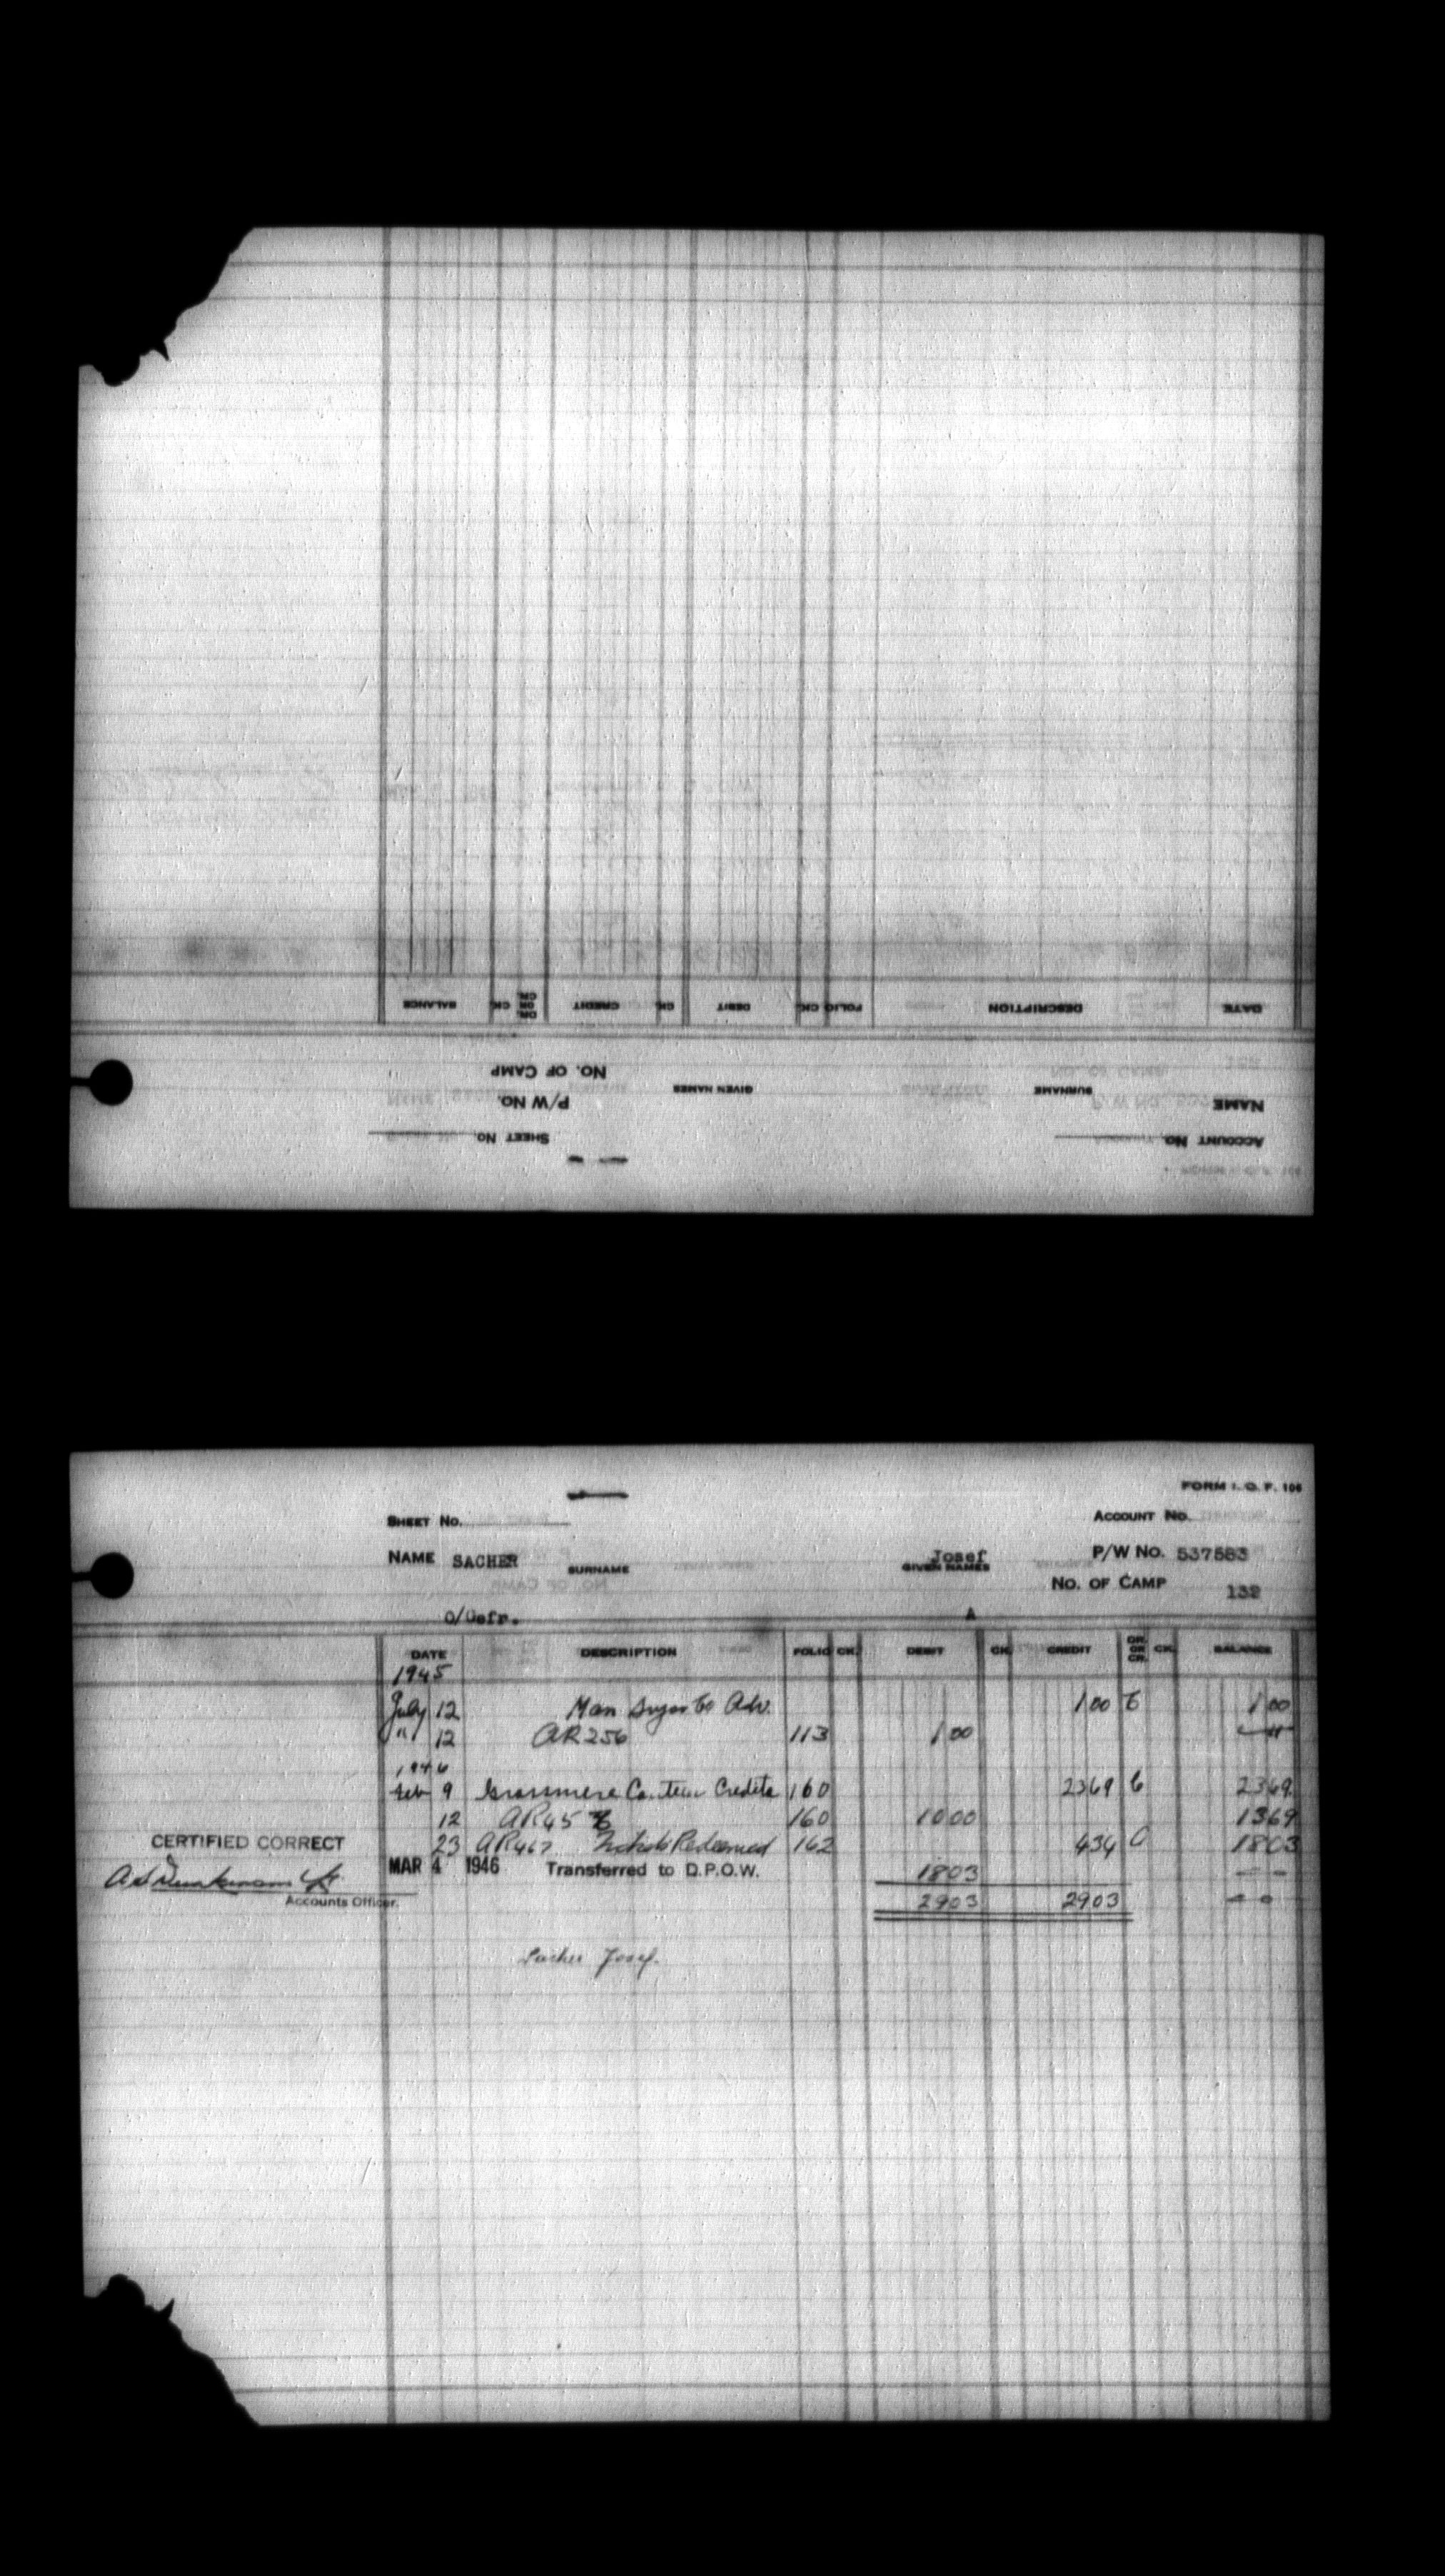 ACCOUNT NO.
SHEET NO.
NAME
SURNAME
GIVEN NAMES
P/W NO.
NO. OF CAMP
DATE DESCRIPTION FOLIO CK. DEBIT CK. CREDIT DR. OR CR. CK. BALANCE
FORM I. O. P. 106
SHEET NO. ACCOUNT NO.
NAME SACHER SURNAME Josef GIVEN NAMES P/W NO. 537583
NO. OF CAMP 132
O/Gefr. A
DATE DESCRIPTION FOLIO CK. DEBIT CK. CREDIT DR. OR CR. CK. BALANCE
1945
July 12 Man Sugar Co Adv. 1 00 C 1 00
" 12 AR256 113 1 00
1946
Feb 9 Grassmere Canteen Credits 160 23 69 C 23 69
12 AR45 160 10 00 13 69
CERTIFIED CORRECT
23 AR467 Redeemed 162 4 34 C 18 03
MAR 4 1946 Transferred to D.P.O.W. 18 03
Accounts Officer.
29 03 29 03
Sacher Josef.